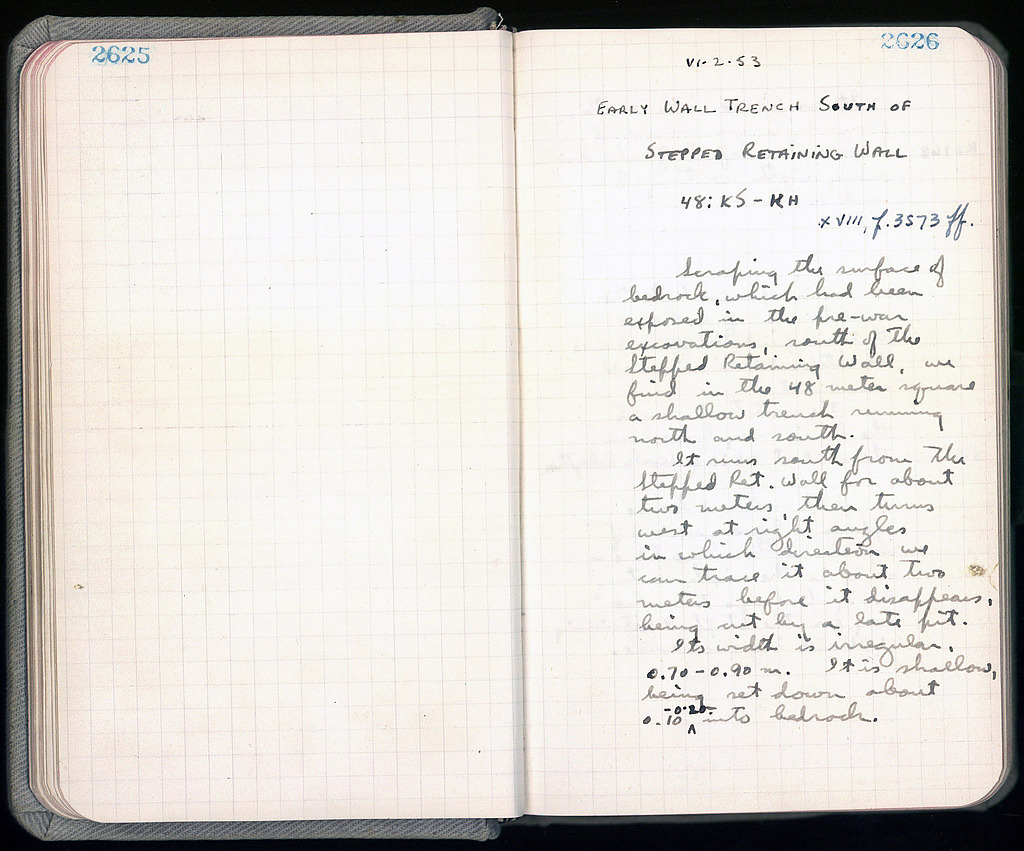 2625
2626
VI-2-53
EARLY WALL TRENCH SOUTH OF
STEPPED RETAINING WALL
48: KS-KH
XVIII, p. 3573 ff.
Scraping the surface of
bedrock, which had been
exposed in the pre-war
excavations, south of the
Stepped Retaining Wall, we
find in the 48 meter square
a shallow trench running
north and south.
It runs south from the
Stepped Ret. Wall for about
two meters, then turns
west at right angles
in which direction we
can trace it about two
meters before it disappears,
being cut by a late pit.
Its width is irregular,
0.70-0.90 m. It is shallow,
being set down about
0.10 -0.20 into bedrock.